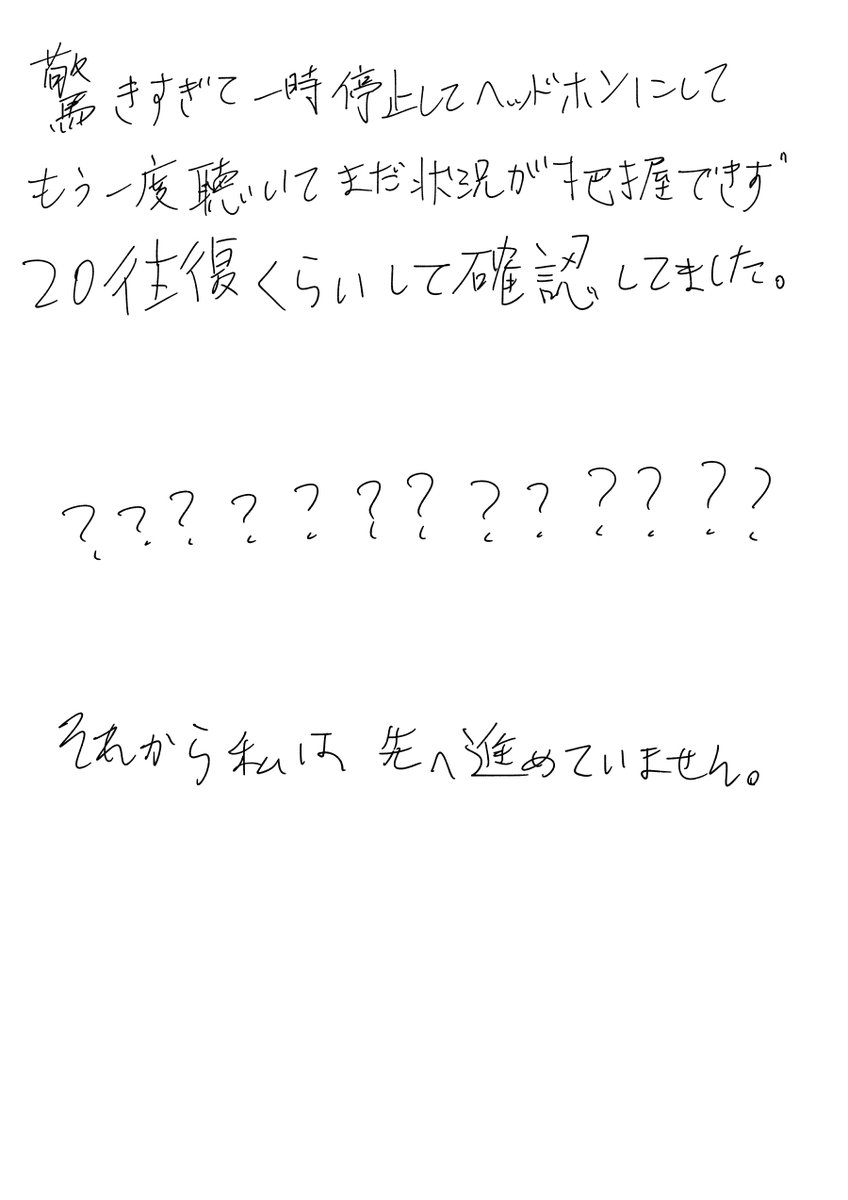 驚きすぎて一時停止してヘッドホンにして
もう一度聴いてまだ状況が把握できず
20往復くらいして確認してました。
?????????????
それから私は先へ進めていません。